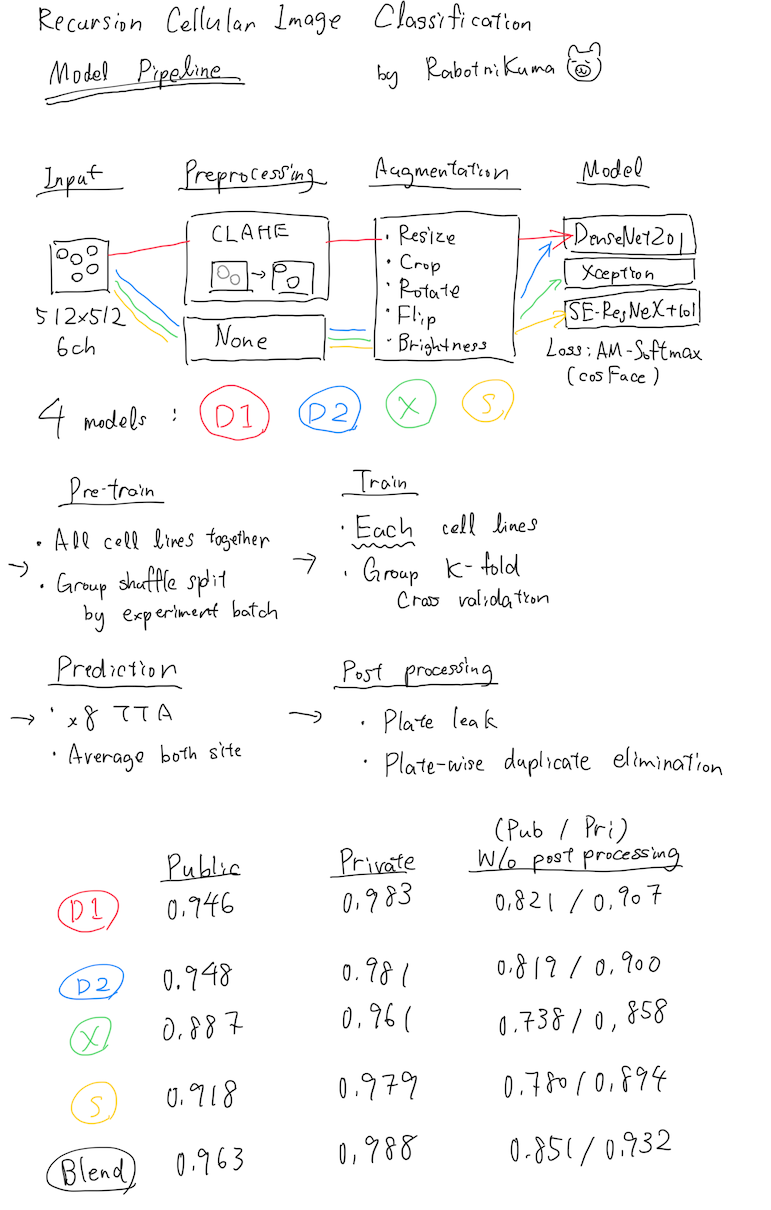 Recursion Cellular Image Classification
Model Pipeline
by RabotniKuma
Input Preprocessing Augmentation Model
CLAHE
None
512x512
6ch
・Resize
・Crop
・Rotate
・Flip
・Brightness
DenseNet201
Xception
SE-ResNeXt101
Loss: AM-Softmax
(cosFace)
4 models : D1 D2 X S
Pre-train
・All cell lines together
→ ・Group shuffle split
by experiment batch
Train
・Each cell lines
→ ・Group K-fold
Cross validation
Prediction
→ ・x8 TTA
・Average both site
Post processing
→ ・Plate leak
・Plate-wise duplicate elimination
(Pub / Pri)
Public Private W/o post processing
D1 0.946 0.983 0.821 / 0.907
D2 0.948 0.981 0.819 / 0.900
X 0.887 0.961 0.738 / 0.858
S 0.918 0.979 0.780 / 0.894
Blend 0.963 0.988 0.851 / 0.932